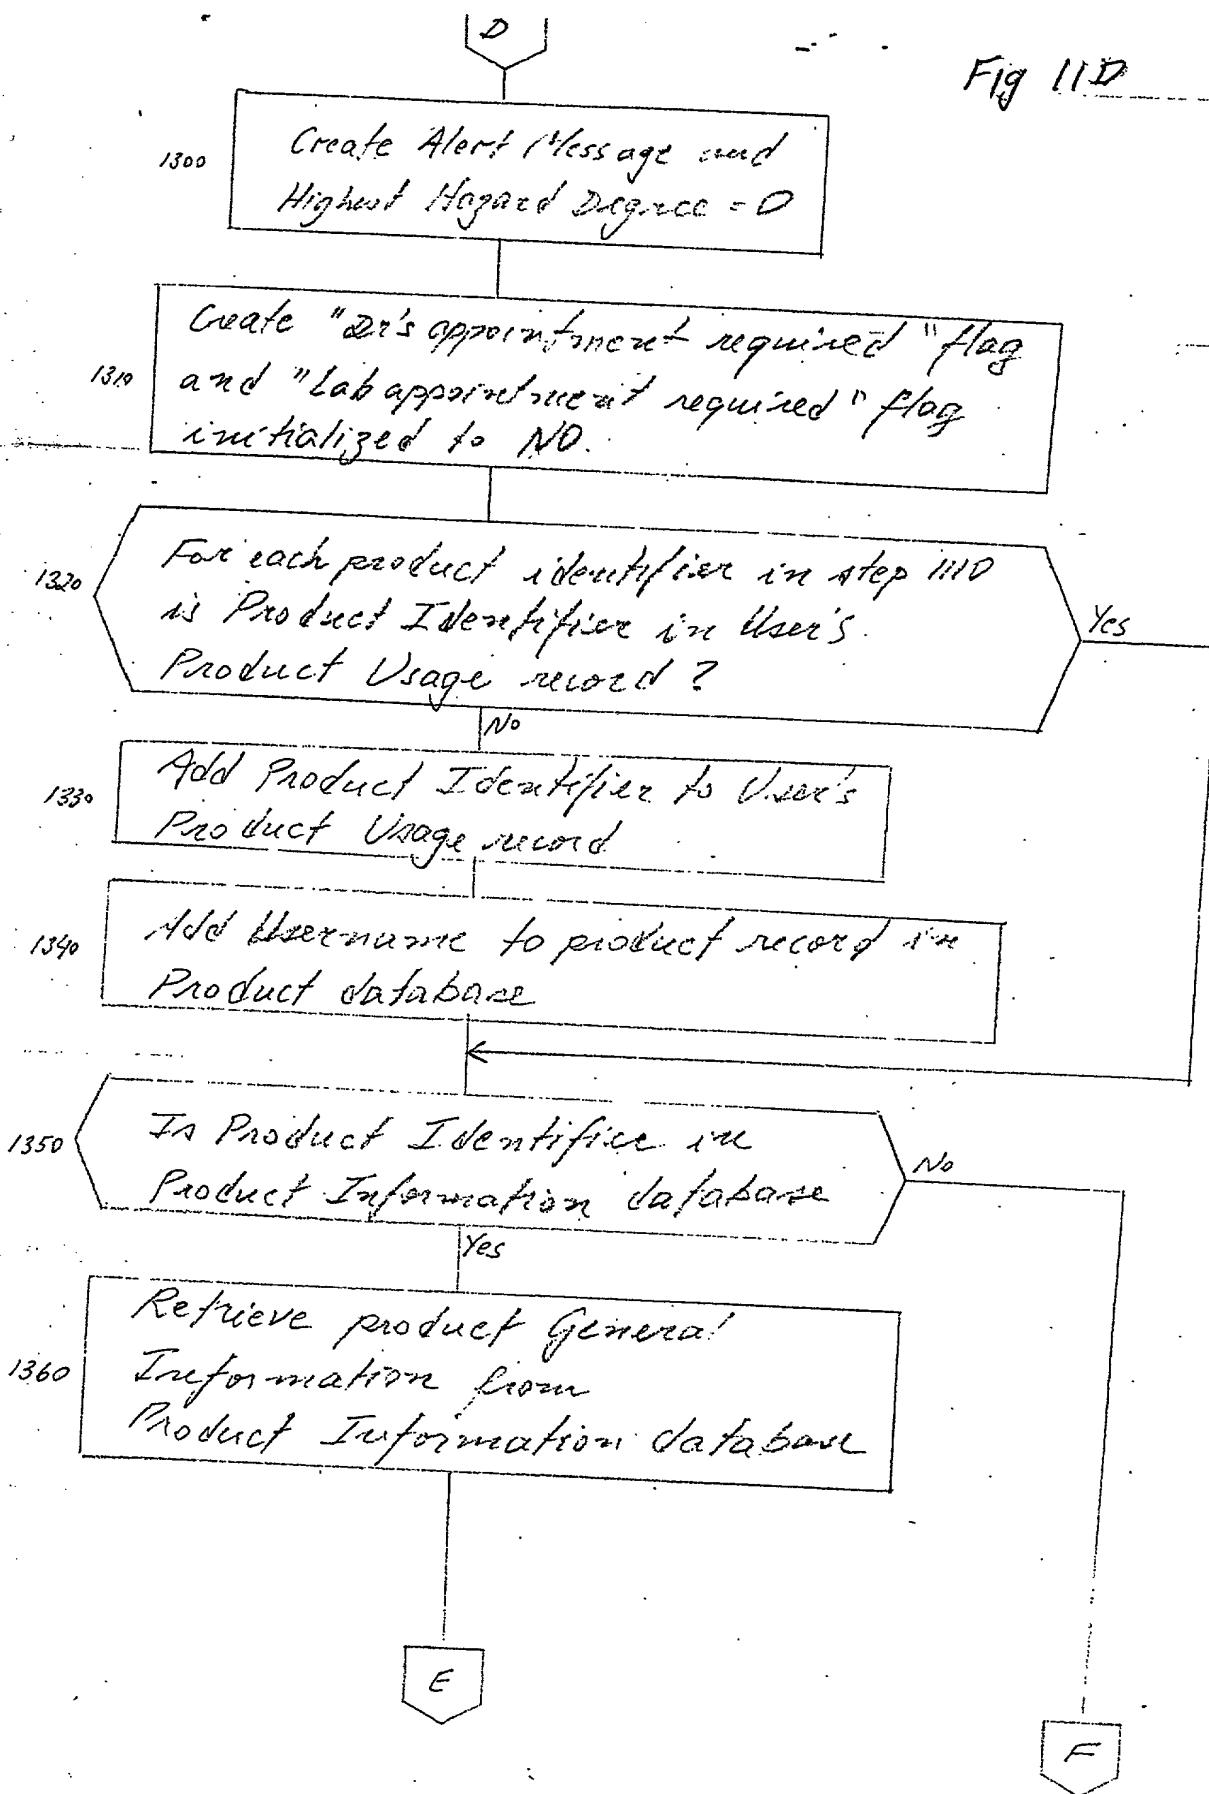 D
Fig 11D
1300
Create Alert Message and
Highest Hazard Degree = 0
1310
Create "Dr's appointment required" flag
and "Lab appointment required" flag
initialized to NO.
1320
For each product identifier in step 1110
is Product Identifier in User's
Product Usage record?
Yes
No
1330
Add Product Identifier to User's
Product Usage record
1340
Add Username to product record in
Product database
1350
Is Product Identifier in
Product Information database
No
Yes
1360
Retrieve product General
Information from
Product Information database
E
F